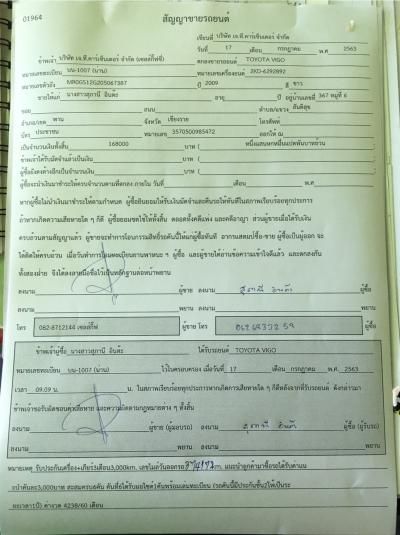 01964
สัญญาขายรถยนต์
เขียนที่ บริษัท เจ.ที.คาร์เซ็นเตอร์ จำกัด (เซลล์กีฟซี่)
วันที่ 17 เดือน กรกฎาคม พ.ศ 2563
ข้าพเจ้า บริษัท เจ.ที.คาร์เซ็นเตอร์ จำกัด (เซลล์กีฟซี่) ตกลงขายรถยนต์ TOYOTA VIGO
หมายเลขทะเบียน บน-1007 (น่าน) หมายเลขเครื่องยนต์ 2KD-6292892
หมายเลขตัวถัง MR0GS12G205067387 ปี 2009 สี ขาว
ขายให้แก่ นางสาวสุภานี อินต๊ะ อายุ ปี อยู่บ้านเลขที่ 367 หมู่ที่ 6
ซอย ถนน ตำบล/แขวง สันติสุข
อำเภอ/เขต พาน จังหวัด เชียงราย โทรศัพท์
บัตร ประชาชน หมายเลข 3570500985472 ออกให้ ณ
เป็นจำนวนเงินทั้งสิ้น 168000 บาท ( หนึ่งแสนหกหมื่นแปดพันบาทถ้วน
ข้าพเจ้าได้รับมัดจำแล้วเป็นเงิน บาท (
ผู้ซื้อยังคงค้างอีกเป็นจำนวนเงิน บาท (
ผู้ซื้อจะนำเงินมาชำระให้ครบจำนวนตามที่ตกลง ภายใน วันที่ เดือน พ.ศ
หากผู้ซื้อไม่นำเงินมาชำระให้ตามกำหนด ผู้ซื้อยินยอมให้ริบเงินมัดจำและคืนรถให้ทันทีในสภาพเรียบร้อยทุกประการ
ถ้าหากเกิดความเสียหายใด ๆ ก็ดี ผู้ซื้อยอมชดใช้ให้ทั้งสิ้น ตลอดทั้งคดีแพ่ง และคดีอาญา ส่วนผู้ขายเมื่อได้รับเงิน
ครบถ้วนตามสัญญาแล้ว ผู้ขายจะทำการโอนกรรมสิทธิ์รถคันนี้ให้แก่ผู้ซื้อทันที อากรแสตมป์ซื้อ-ขาย ผู้ซื้อเป็นผู้ออก จะ
ได้คิดให้ครบถ้วน เมื่อวันทำการโอนทะเบียนยานพาหนะฯ ผู้ซื้อ และผู้ขายได้อ่านข้อความเข้าใจดีแล้ว และตกลงกัน
ทั้งสองฝ่าย จึงได้ลงลายมือชื่อไว้เป็นหลักฐานต่อหน้าพยาน
ลงนาม ผู้ขาย ลงนาม สุภานี อินต๊ะ ผู้ซื้อ
ลงนาม พยาน ลงนาม พยาน
โทร 082-8712144 เซลล์กีฟ ผู้ขาย โทร ผู้ซื้อ
ข้าพเจ้าผู้ซื้อ นางสาวสุภานี อินต๊ะ ได้รับรถยนต์ TOYOTA VIGO
หมายเลขทะเบียน บน-1007 (น่าน) ไว้ในครอบครอง เมื่อวันที่ 17 เดือน กรกฎาคม พ.ศ. 2563
เวลา 09.09 น. น. ในสภาพเรียบร้อยทุกประการหากเกิดการเสียหายใด ๆ ก็ดีหลังจากที่รับรถยนต์ ดังกล่าวมา
ข้าพเจ้าขอรับผิดชอบค่าเสียหาย และความผิดตามกฎหมายต่าง ๆ ทั้งสิ้น
ลงนาม ผู้ขาย (ผู้มอบรถ) ลงนาม สุภานี อินต๊ะ ผู้ซื้อ (ผู้รับรถ)
ลงนาม พยาน ลงนาม พยาน
หมายเหตุ รับประกันเครื่อง+เกียร์3เดือน3,000km. เลขไมล์วันออกรถ km. แนะนำลูกค้ามาซื้อรถได้รับค่าแน